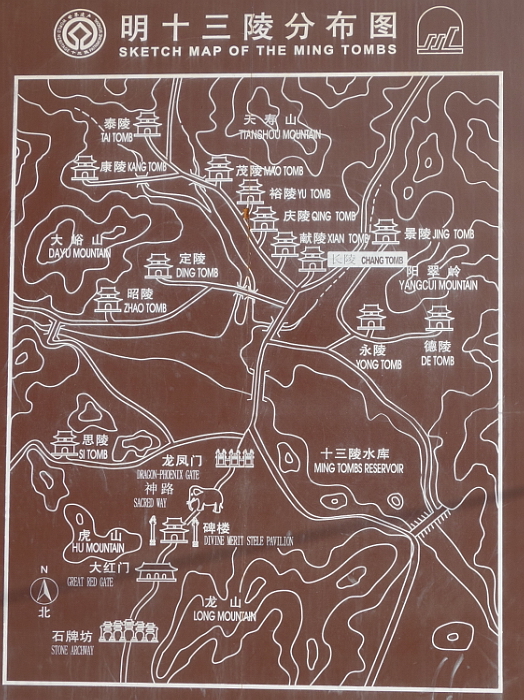 明十三陵分布图
SKETCH MAP OF THE MING TOMBS
泰陵
TAI TOMB
天寿山
TIANSHOU MOUNTAIN
康陵 KANG TOMB
茂陵 MAO TOMB
裕陵 YU TOMB
庆陵 QING TOMB
献陵 XIAN TOMB
景陵 JING TOMB
大峪山
DAYU MOUNTAIN
定陵
DING TOMB
长陵 CHANG TOMB
阳翠岭
YANGCUI MOUNTAIN
昭陵
ZHAO TOMB
永陵
YONG TOMB
德陵
DE TOMB
思陵
SI TOMB
龙凤门
DRAGON-PHOENIX GATE
十三陵水库
MING TOMBS RESERVOIR
神路
SACRED WAY
碑楼
DIVINE MERIT STELE PAVILION
虎山
HU MOUNTAIN
大红门
GREAT RED GATE
N
北
龙山
LONG MOUNTAIN
石牌坊
STONE ARCHWAY